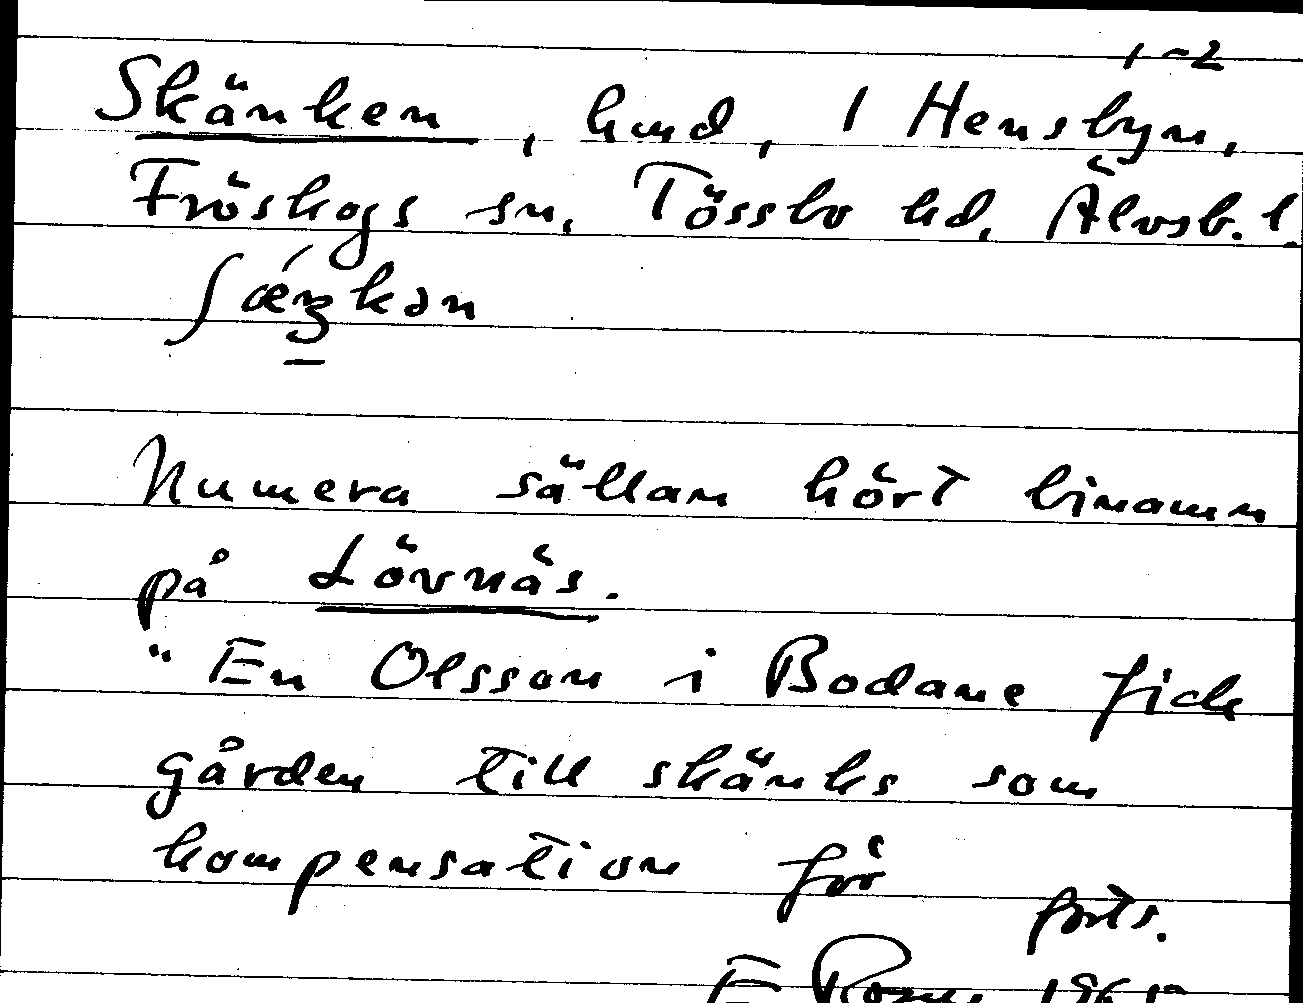 1-2
Skänken, hmd, 1 Hensbyn,
Fröskogs sn, Tössbo hd, Älvsb. l.
ʃǽŋkən
Numera sällan hört binamn
på Lövnäs.
"En Olsson i Bodane fick
gården till skänks som
kompensation för
forts.
E